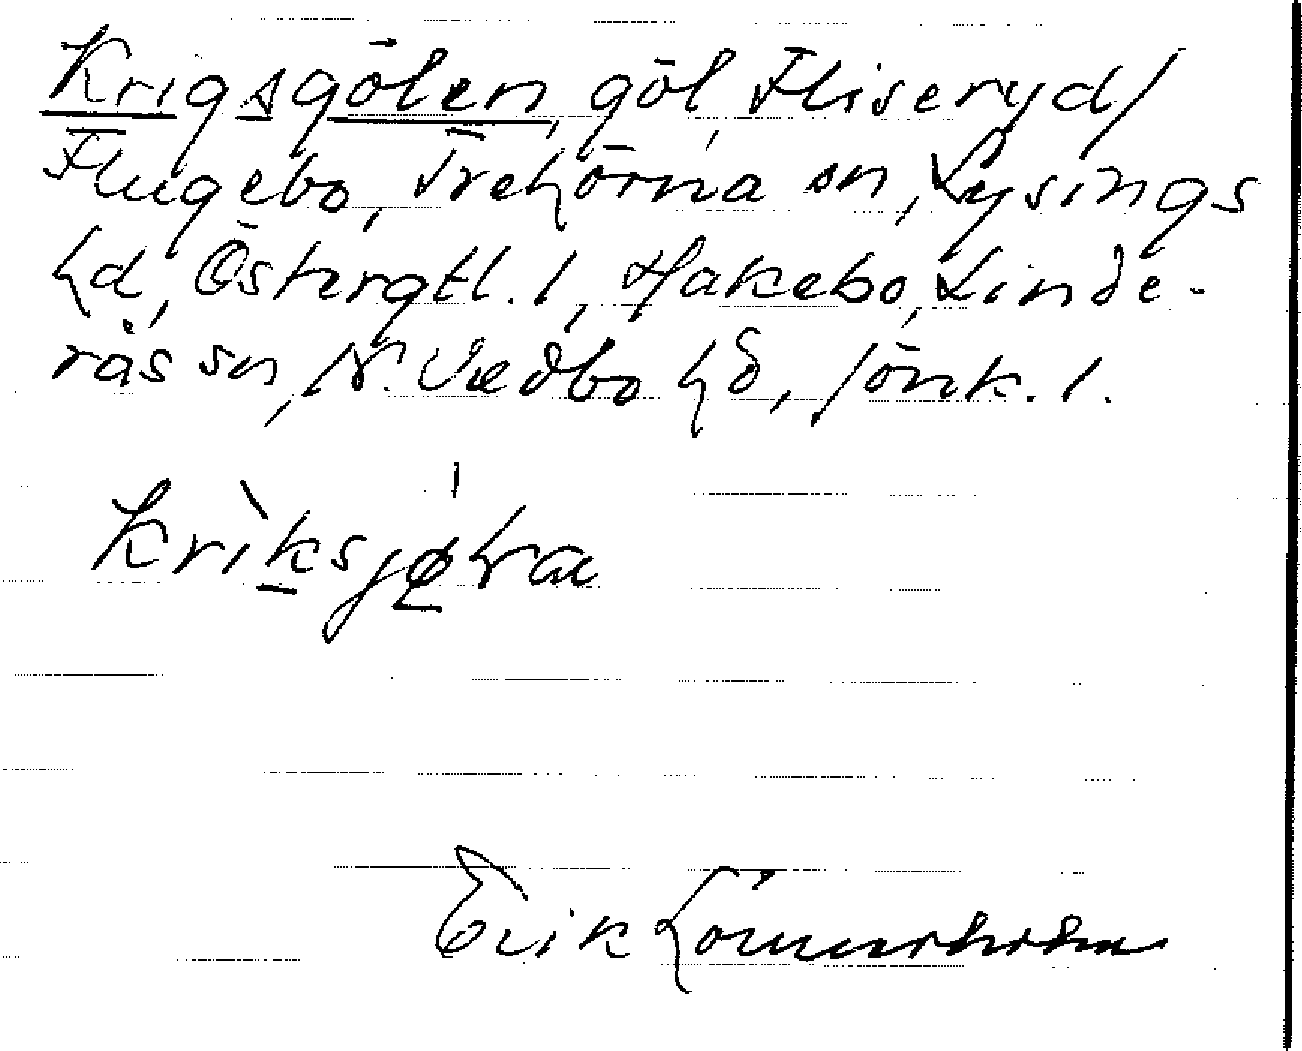 Krigsgölen, göl, Fliseryd/
Flugebo, Trehörna sn, Lysings
hd, Östergtl. l, Hakebo, Linde-
rås sn, N. Vedbo hd, Jönk. l.
Krìksjøḷra
Erik